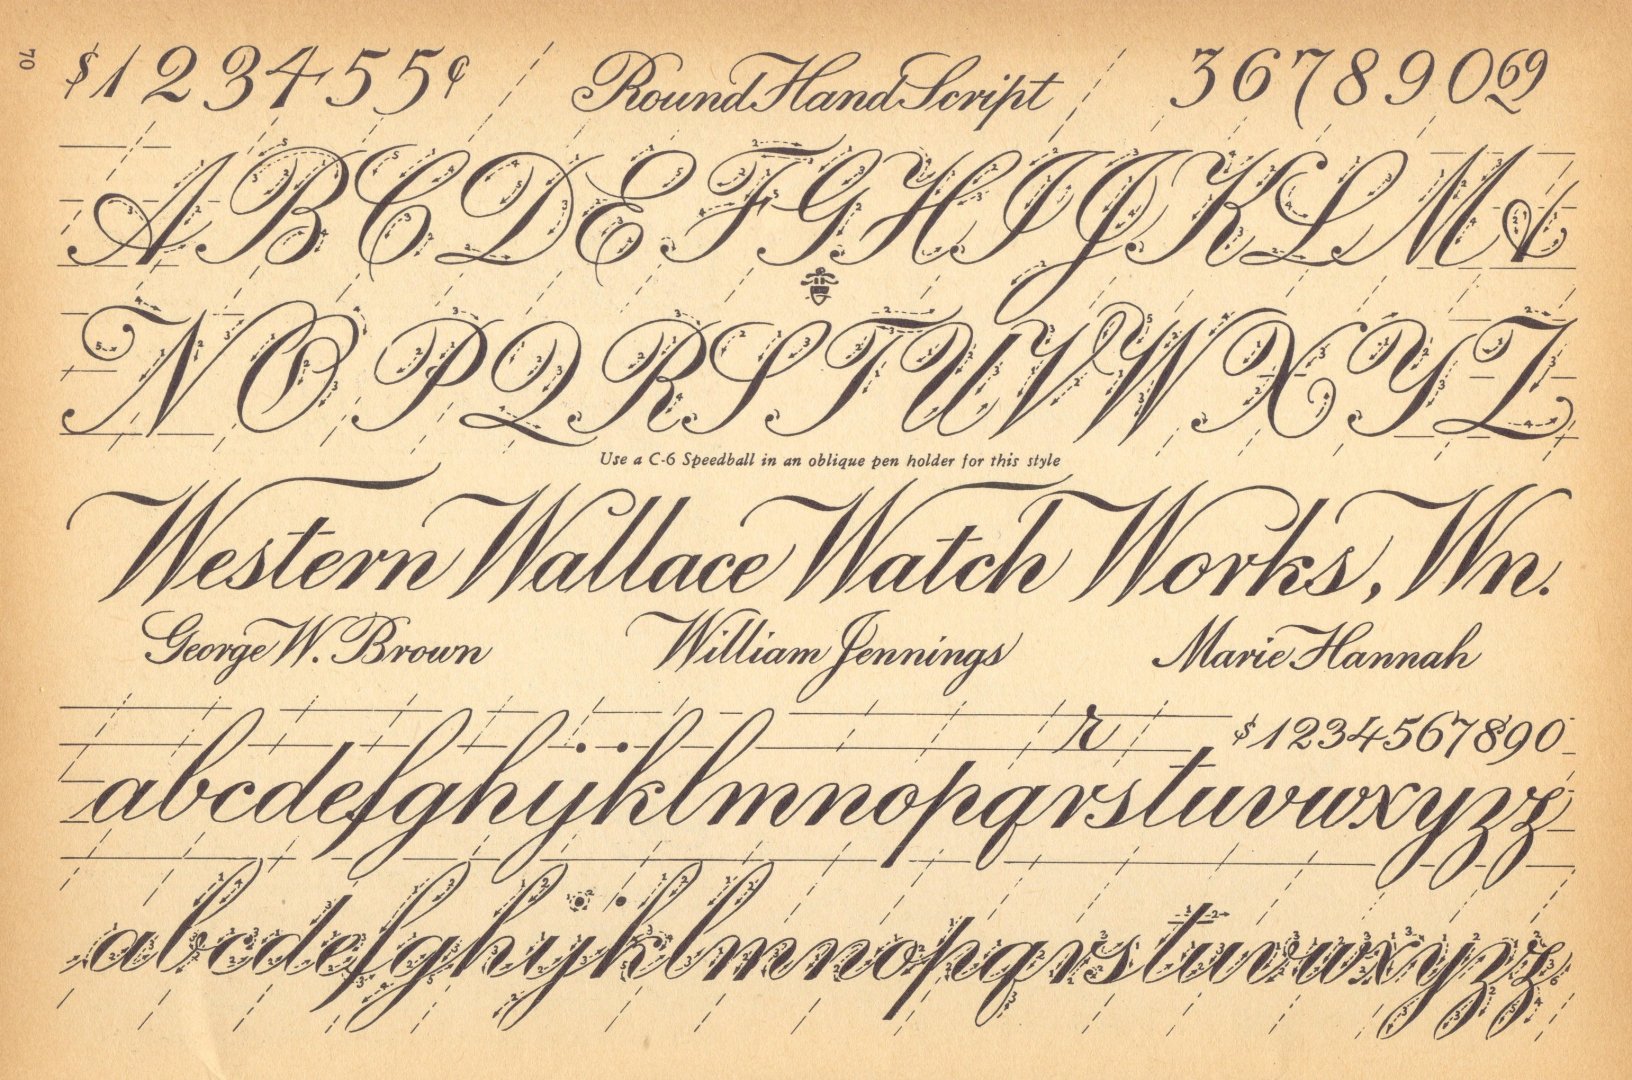 70
$123455¢ Round Hand Script 36789069
ABCDEFGHIJKLM&
NOPQRSTUVWXYZ
Use a C-6 Speedball in an oblique pen holder for this style
Western Wallace Watch Works, Wn.
George W. Brown William Jennings Marie Hannah
r $1234567890
abcdefghijklmnopqrstuvwxyzz
abcdefghijklmnopqrstuvwxyzz